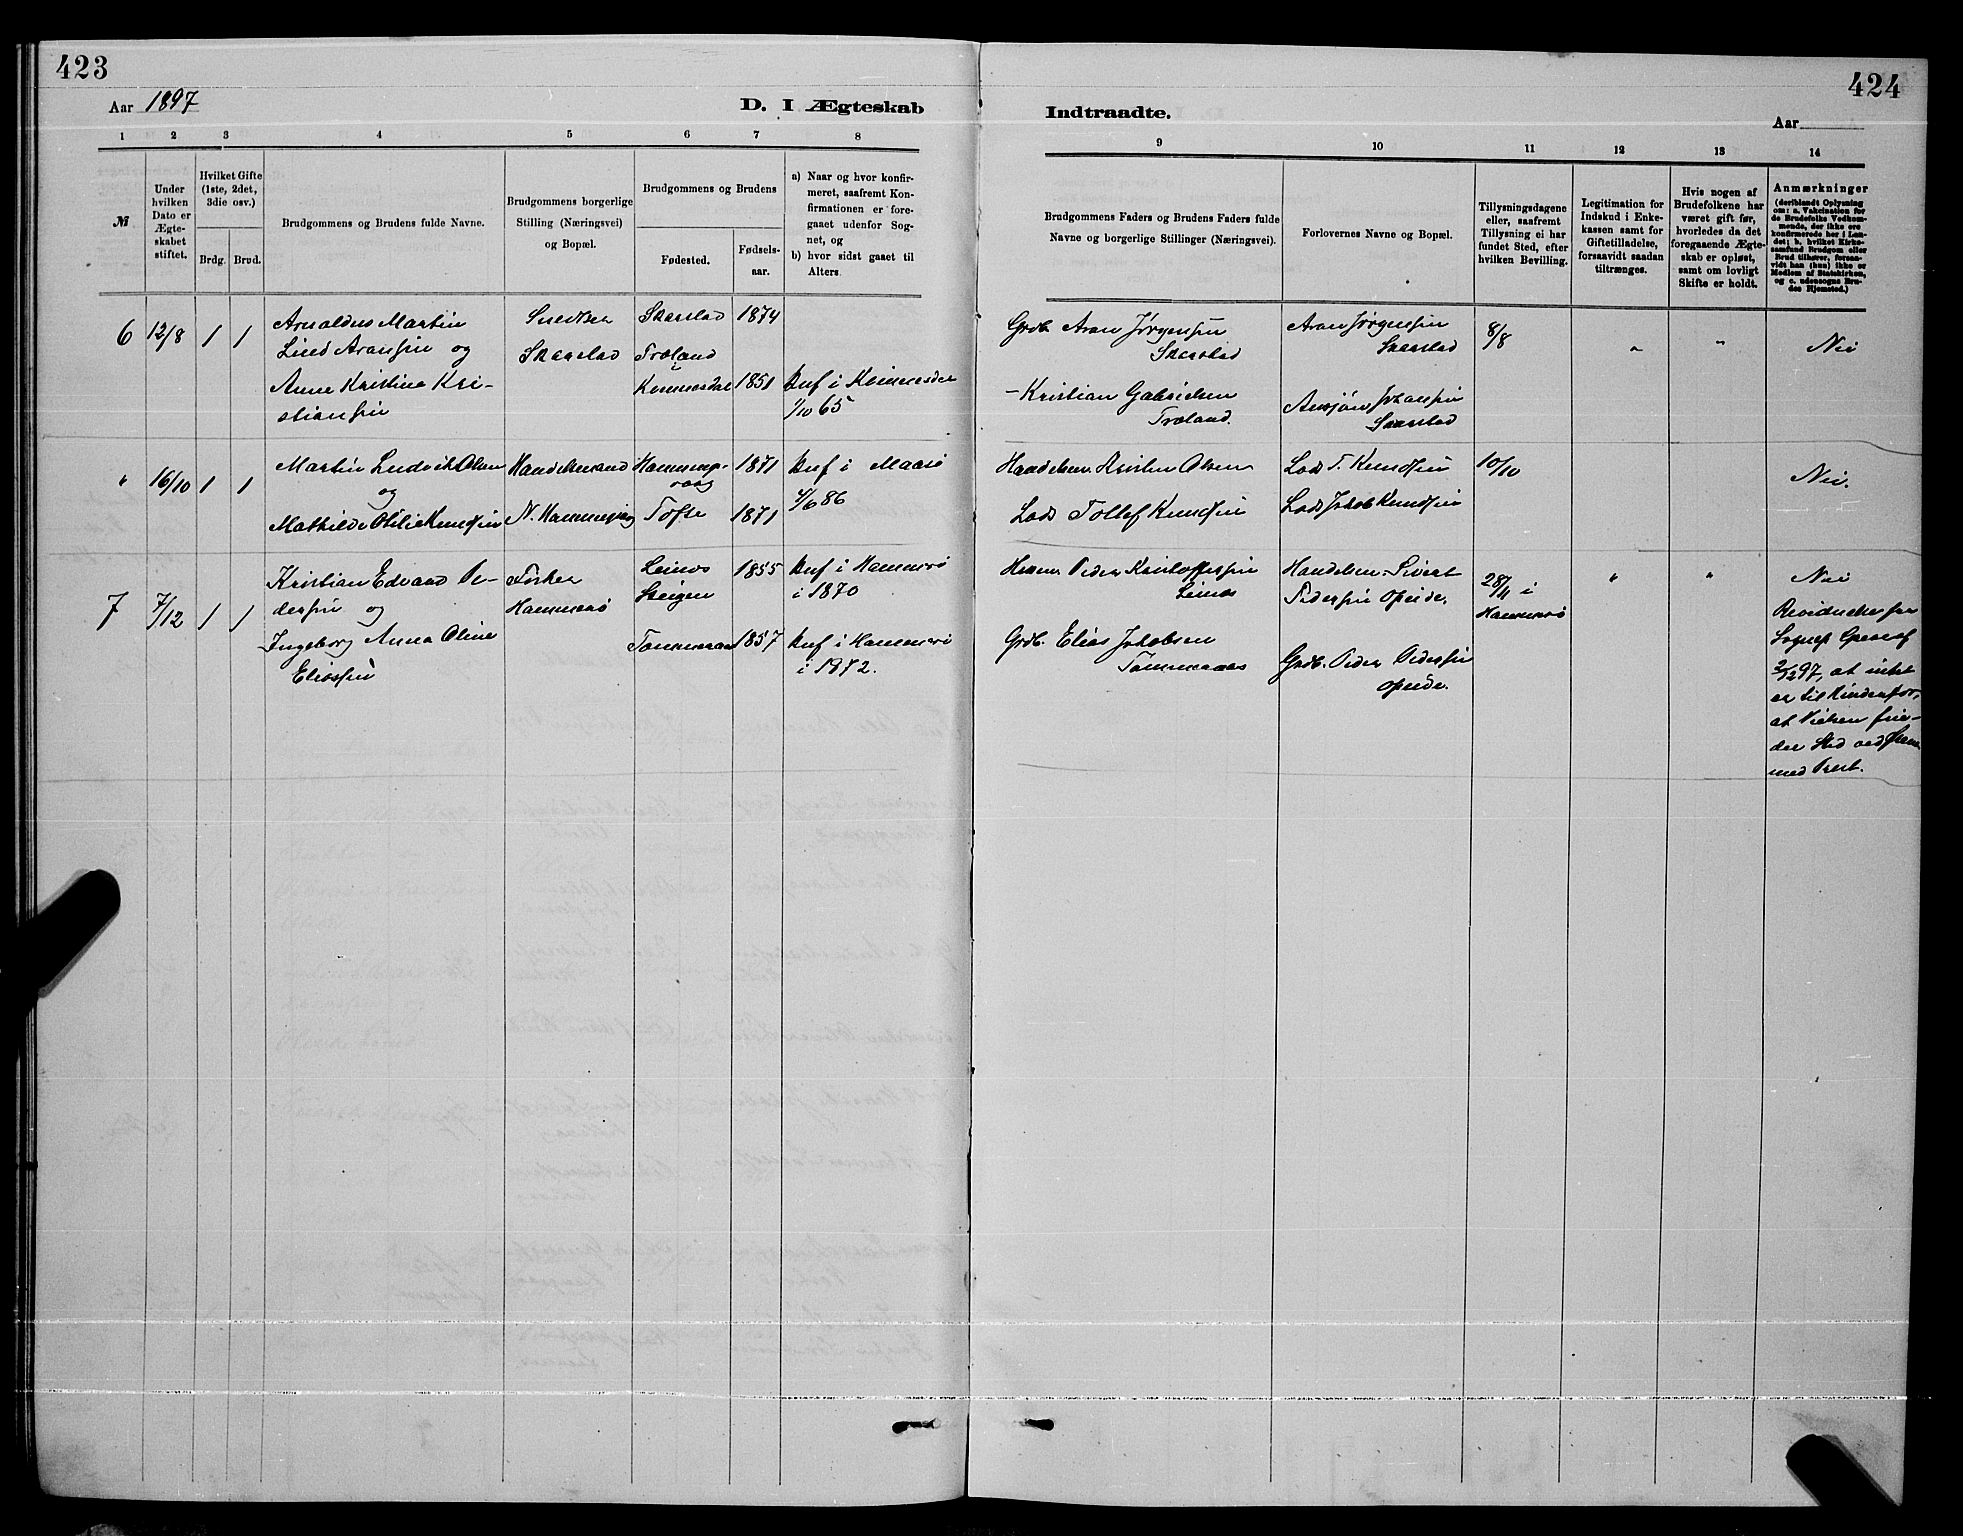 423
Aar 1897
D. I Ægteskab
1 2 3 4 5 6 7 8
№
Under hvilken Dato er Ægteskabet stiftet.
Hvilket Gifte (1ste, 2det, 3die osv.)
Brdg. Brud.
Brudgommens og Brudens fulde Navne.
Brudgommens borgerlige Stilling (Næringsvei) og Bopæl.
Brudgommens og Brudens
Fødested.
Fødsels-aar.
a) Naar og hvor konfir-
meret, saafremt Kon-
firmationen er fore-
gaaet udenfor Sog-
net, og
b) hvor sidst gaaet til
Alters.
6 12/8 1 1
Arnoldus Martin
Lind Aronsen og
Anne Kristine Kri-
stiansen
Skarstad
Skarstad 1874
Troland
1851
Knf i
1/10 65
" 16/10 1 1
Martin Ludvik Olsen
og
Mathilde Otilie Knudsen
Handelsmand
1871
Tofte 1871
Knf i Maasø
86
7 7/12 1 1
Kristian Edvard Pe-
dersen og
Ingeborg Anna Oline
Eliassen
Fisker
Hammerø
Leines
Steigen 1855
1857
Knf i Hammerø
i 1870
Knf i Hammerø
i 1872.
424
Indtraadte.
Aar
9 10 11 12 13 14
Brudgommens Faders og Brudens Faders fulde
Navne og borgerlige Stillinger (Næringsvei).
Forlovernes Navne og Bopæl.
Tillysningsdagene
eller, saafremt
Tillysning ei har
fundet Sted, efter
hvilken Bevilling.
Legitimation for
Indskud i Enke-
kassen samt for
Giftetilladelse,
forsaavidt saadan
tiltrænges.
Hvis nogen af
Brudefolkene har
været gift før,
hvorledes da det
foregaaende Ægte-
skab er opløst,
samt om lovligt
Skifte er holdt.
Anmærkninger
(deriblandt Oplysning
om: a. Vakcination for
de Brudefolks Vedkom-
mende, der ikke ere
konfirmerede her i Lan-
det; b. hvilket Kirke-
samfund Brudgom eller
Brud tilhører, forsaa-
vidt han (hun) ikke er
Medlem af Statskirken,
og c. udensogns Bru-
des Hjemsted.)
Grdb. Aron Jørgensen
Skarstad
Aron Jørgensen
Skarstad
8/8
"
"
Nei
- Kristian Gabrielsen
Troland.
Johansen
Skarstad
Handelsm. Olsen
Lods T. Knudsen
10/10
Nei.
Lods Tollef Knudsen
Lods Jakob Knudsen
Peder Kristoffersen
Leines
Handelsm. Sivert
Pedersen Opeide.
28/11 i
Hammerø
"
"
Nei
Grdb. Elias Jakobsen
Grdb. Peder Pedersen
Opeide.
97, at intet
er til Hinder for,
at Vielsen fin-
der Sted ved
med Prest.